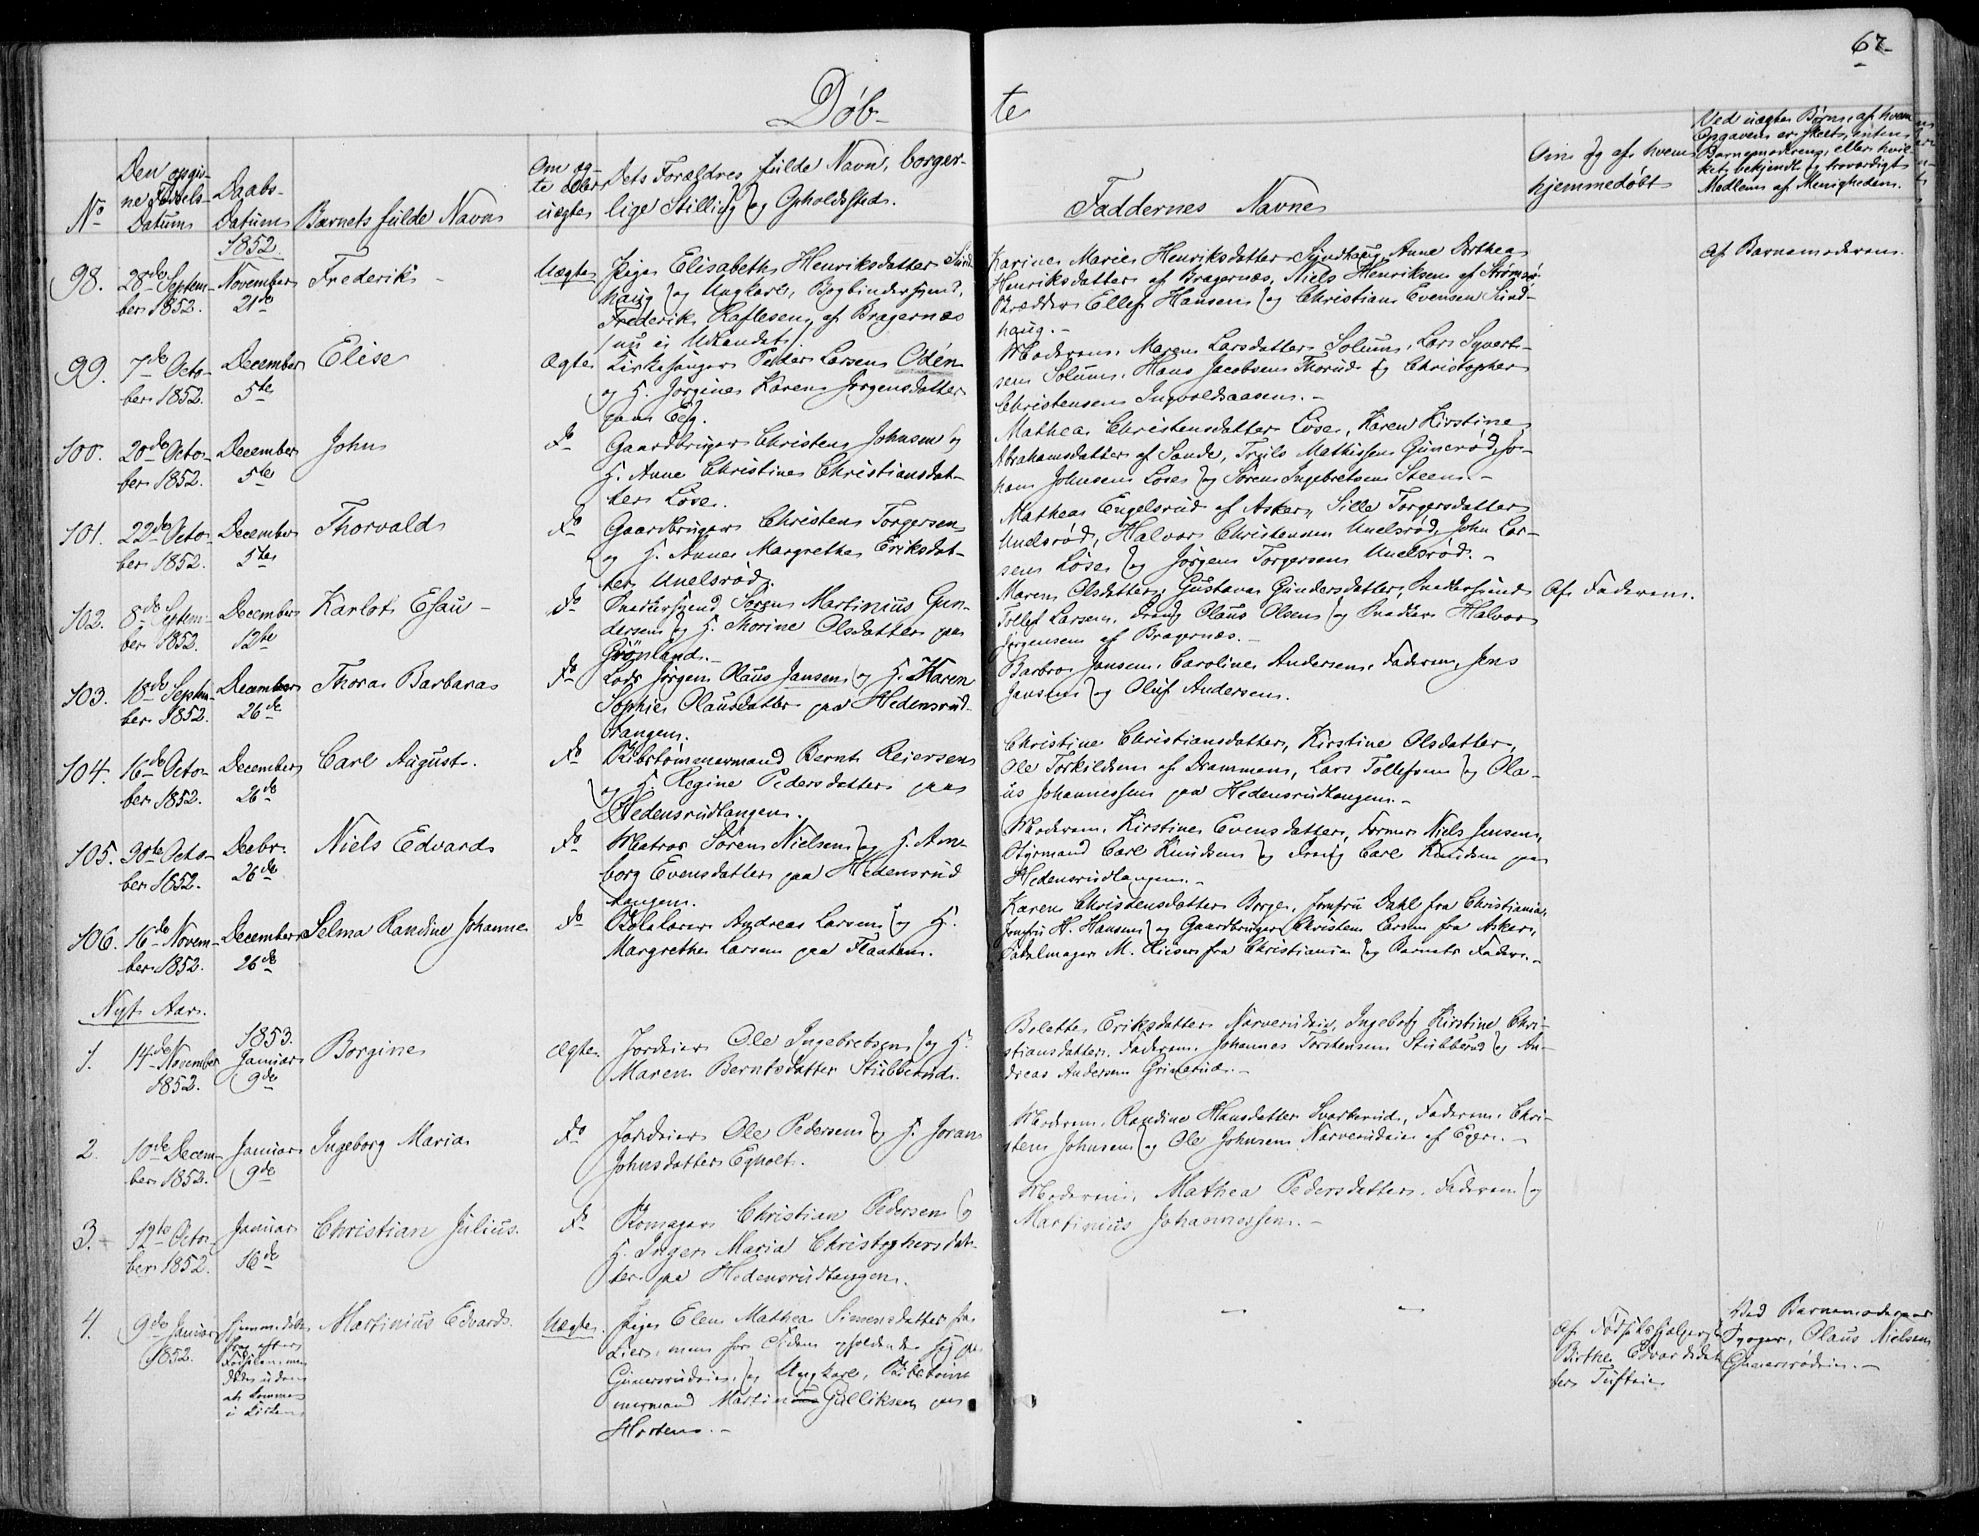 67
Døbte
No
Den opgivne Fødsels-Datum
Daabs-Datum
Barnets fulde Navn
Om ægte eller uægte
Dets Forældres fulde Navn, borgerlige Stilling og Opholdssted.
Faddernes Navne
Om og af hvem hjemmedøbt
Ved uægte Børn, af hvem Opgaven er skeet, enten Barnemoderen, eller hvilket bekjendt og troværdigt Medlem af Menigheden.
1852.
98.
28de Septem-
ber 1852.
November
21de
Frederik
Uægte
Pige Elisabeth Henriksdatter Sund-
haug og Ungkarl, Bogbindersvend,
Frederik Raflesen, af Bragernæs
(nu i Udlandet).
Karine Marie Henriksdatter Sundhaug, Anne Dorthea
Henriksdatter af Bragernæs, Niels Henriksen af Strømsø,
Skrædder Ellef Hansen og Christian Evensen Sund-
haug.-
Af Barnemoderen.
99.
7de Octo-
ber 1852.
December
5te
Elise
Ægte
Kirkesanger Peder Larsen Odén
og H. Jorgine Karen Jørgensdatter
paa Eeg.
Moderen, Maren Larsdatter Solum, Lars Syvert-
sen Solum, Hans Jacobsen Thorud og Christopher
Christensen Ingvoldsaasen.-
100.
20de Octo-
ber 1852.
December
5te
John
Do
Gaardbruger Christen Johnsen og
H. Anne Christine Christiansdat-
ter Løse.
Mathea Christensdatter Løse, Karen Kirstine
Abrahamsdatter af Sande, Truls Mathissen Gunerød, Jo-
han Johnsen Løse og Søren Ingebretsen Steen.-
101.
22de Octo-
ber 1852.
December
5te
Thorvald
Do
Gaardbruger Christen Torgersen
og H. Anne Margrethe Eriksdat-
ter Unelsrød.
Mathea Engelsrud af Asker, Sille Torgersdatter
Unelsrød, Halvor Christensen Unelsrød, John Lar-
sen Løse og Jørgen Torgersen Unelsrød.-
102.
8de Septem-
ber 1852.
December
12te
Karlot Esau-
Do
Snedkersvend Søren Martinius Gun-
dersen og H. Thorine Olsdatter paa
Grønland.-
Maren Olsdatter, Gustava Gundersdatter, Snedkersvend
Tollef Larsen, Dreng Olaus Olsen og Snedker Halvor
Jørgensen af Bragernæs.-
Af Faderen.
103.
18de Septem-
ber 1852.
December
26de
Thora Barbara
Do
Lods Jørgen Olaus Jansen og H. Karen
Sophie Olausdatter paa Hedensrud-
tangen.
Barbro Jansen, Caroline Andersen, Faderen, Jens
Jansen og Oluf Andersen.
104.
16de Octo-
ber 1852.
December
26de
Carl August.
Do
Skibstømmermand Bernt Reiersen
og H. Regine Pedersdatter paa
Hedensrudtangen.
Christine Christiansdatter, Kirstine Olsdatter,
Ole Torkildsen af Drammen, Lars Tollefsen og Ola-
us Johannessen paa Hedensrudtangen.-
105.
30te Octo-
ber 1852.
Decbr.
26de
Niels Edvard
Do
Matros Søren Nielsen og H. Ann-
borg Evensdatter paa Hedensrud
tangen.
Moderen, Kirstine Evensdatter, Farmer Niels Jensen,
Styrmand Carl Knudsen og Dreng Carl Knudsen paa
Hedensrudtangen.-
106.
16de Novem-
ber 1852.
December
26de
Selma Randine Johanne
Do
Skolelærer Andreas Larsen og H.
Margrethe Larsen paa Flaaten.
Karen Christensdatter Berge, Jomfru Dahl fra Christiania,
Jomfru H. Hansen og Gaardbruger Christen Larsen fra Asker,
Sadelmager M. Kieser fra Christiania og Barnets Fader.-
Nyt Aar.
1853.
1.
14de November
1852.
Januar
9de
Borgine
Ægte.
Jordeier Ole Ingebretsen og H.
Maren Berntsdatter Stubberud.
Bolette Eriksdatter Narverudeie, Ingeborg Kirstine Chri-
stiansdatter, Faderen, Johannes Torstensen Stubberud og An-
dreas Andersen Grimerud.-
2.
10de Decem-
ber 1852.
Januar
9de
Ingeborg Maria
Do
Jordeier Ole Pedersen og H. Joran
Johnsdatter Egholt.
Moderen, Randine Hansdatter Svarterud, Faderen, Chri-
sten Johnsen og Ole Johnsen Narverudeie af Eger.-
3.
12te Octo-
ber 1852.
Januar
16de
Christian Julius.
Do
Skomager Christian Pedersen og
H. Inger Maria Christophersdat-
ter paa Hedensrudtangen.
Moderen, Mathea Pedersdatter, Faderen og
Martinius Johannessen.-
4.
9de Januar
1852.
Hjemmedøbt
strax efter
Fødselen, men
døde uden
at komme
i Kirken
Martinius Edvard.
Uægte.
Pige Elen Mathea Simensdatter fra
Lier, men for Tiden opholdende sig paa
Gunerudeie, og Ungkarl, Skibstøm
mermand Martin Gulliksen paa
Horten.-
Af Fødselshjelperske
Birthe Edvardsdat-
ter Tufteie
Ved Barnemoderens
Svoger, Olaus Nielsen
Gunerrødeie.-